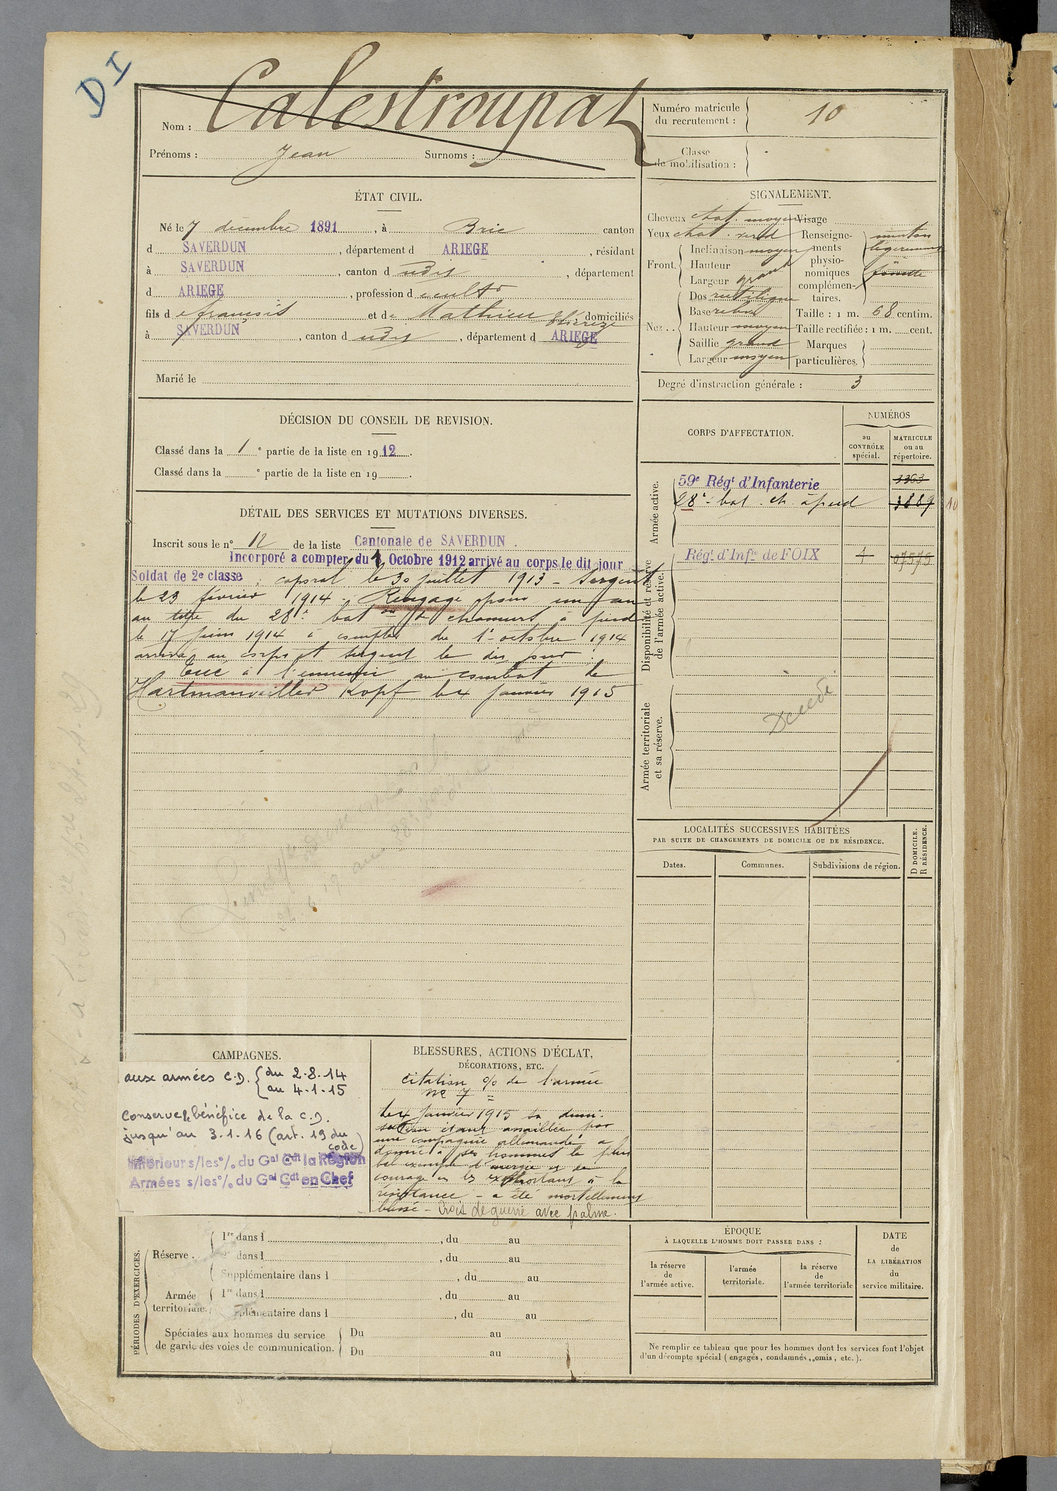 DI
Nom : Calestroupat
Prénoms : Jean Surnoms :
Numéro matricule du recrutement : 10
Classe de mobilisation :
ÉTAT CIVIL.
Né le 7 décembre 1891, à Brie canton
d SAVERDUN, département d ARIEGE, résidant
à SAVERDUN, canton d udit, département
d ARIEGE, profession d cultr
fils d e françois et de Mathieu Thérèze domiciliés
à SAVERDUN, canton d udit, département d ARIEGE
Marié le
SIGNALEMENT.
Cheveux chat. moyen Visage
Yeux chat. verd
Front. Inclinaison moyen
Hauteur
Largeur grand
Nez. Dos rectiligne
Base relevé
Hauteur moyen
Saillie grand
Largeur moyen
Renseignements physionomiques complémentaires. menton légèrement
Taille : 1 m. 68 centim.
Taille rectifiée : 1 m. cent.
Marques particulières.
Degré d'instruction générale : 3
DÉCISION DU CONSEIL DE REVISION.
Classé dans la 1e partie de la liste en 1912.
Classé dans la e partie de la liste en 19 .
DÉTAIL DES SERVICES ET MUTATIONS DIVERSES.
Inscrit sous le n° 12 de la liste Cantonale de SAVERDUN.
Incorporé a compter du 1 Octobre 1912 arrivé au corps le dit jour
Soldat de 2e classe, caporal le 30 juillet 1913 - Sergent
le 23 février 1914. Rengagé pour un an
au titre du 28e baton de chasseurs à pied
le 17 juin 1914 à compter du 1er octobre 1914
arrivé au corps et sergent le dit jour.
Tué à l'ennemi au combat de
Hartmanviller Kopf le 4 janvier 1915
CORPS D'AFFECTATION.
NUMÉROS
au CONTRÔLE spécial.
MATRICULE ou au répertoire.
Armée active.
59e Régt d'Infanterie
28e bat. ch. à pied
Disponibilité et réserve de l'armée active.
Régt d'Infie de FOIX
Armée territoriale et sa réserve.
Décédé
LOCALITÉS SUCCESSIVES HABITÉES
PAR SUITE DE CHANGEMENTS DE DOMICILE OU DE RÉSIDENCE.
D DOMICILE.
R RÉSIDENCE.
Dates. Communes. Subdivisions de région.
CAMPAGNES.
aux armées C.D. { du 2-8-14
au 4-1-15
Conserve le bénéfice de la C.D.
jusqu'au 3.1.16 (art. 19 du
code)
Intérieur s/les °/. du Gal Cdt la Région
Armées s/les °/. du Gal Cdt en Chef
BLESSURES, ACTIONS D'ÉCLAT,
DÉCORATIONS, ETC.
Citation o/o de l'armée
n° 7
Le 4 Janvier 1915 sa demi-
section étant assaillie par
une compagnie allemande a
donné à ses hommes le plus
bel exemple d'énergie et de
courage en les exhortant à la
résistance - a été mortellement
blessé - Croix de guerre avec palme.
PÉRIODES D'EXERCICES.
Réserve.
1re dans l , du au
2e dans l , du au
Supplémentaire dans l , du au
Armée territoriale.
1re dans l , du au
Supplémentaire dans l , du au
Spéciales aux hommes du service Du au
de garde des voies de communication. Du au
ÉPOQUE
À LAQUELLE L'HOMME DOIT PASSER DANS :
la réserve de l'armée active.
l'armée territoriale.
la réserve de l'armée territoriale
DATE de LA LIBÉRATION du service militaire.
Ne remplir ce tableau que pour les hommes dont les services font l'objet
d'un décompte spécial (engagés, condamnés, omis, etc.).